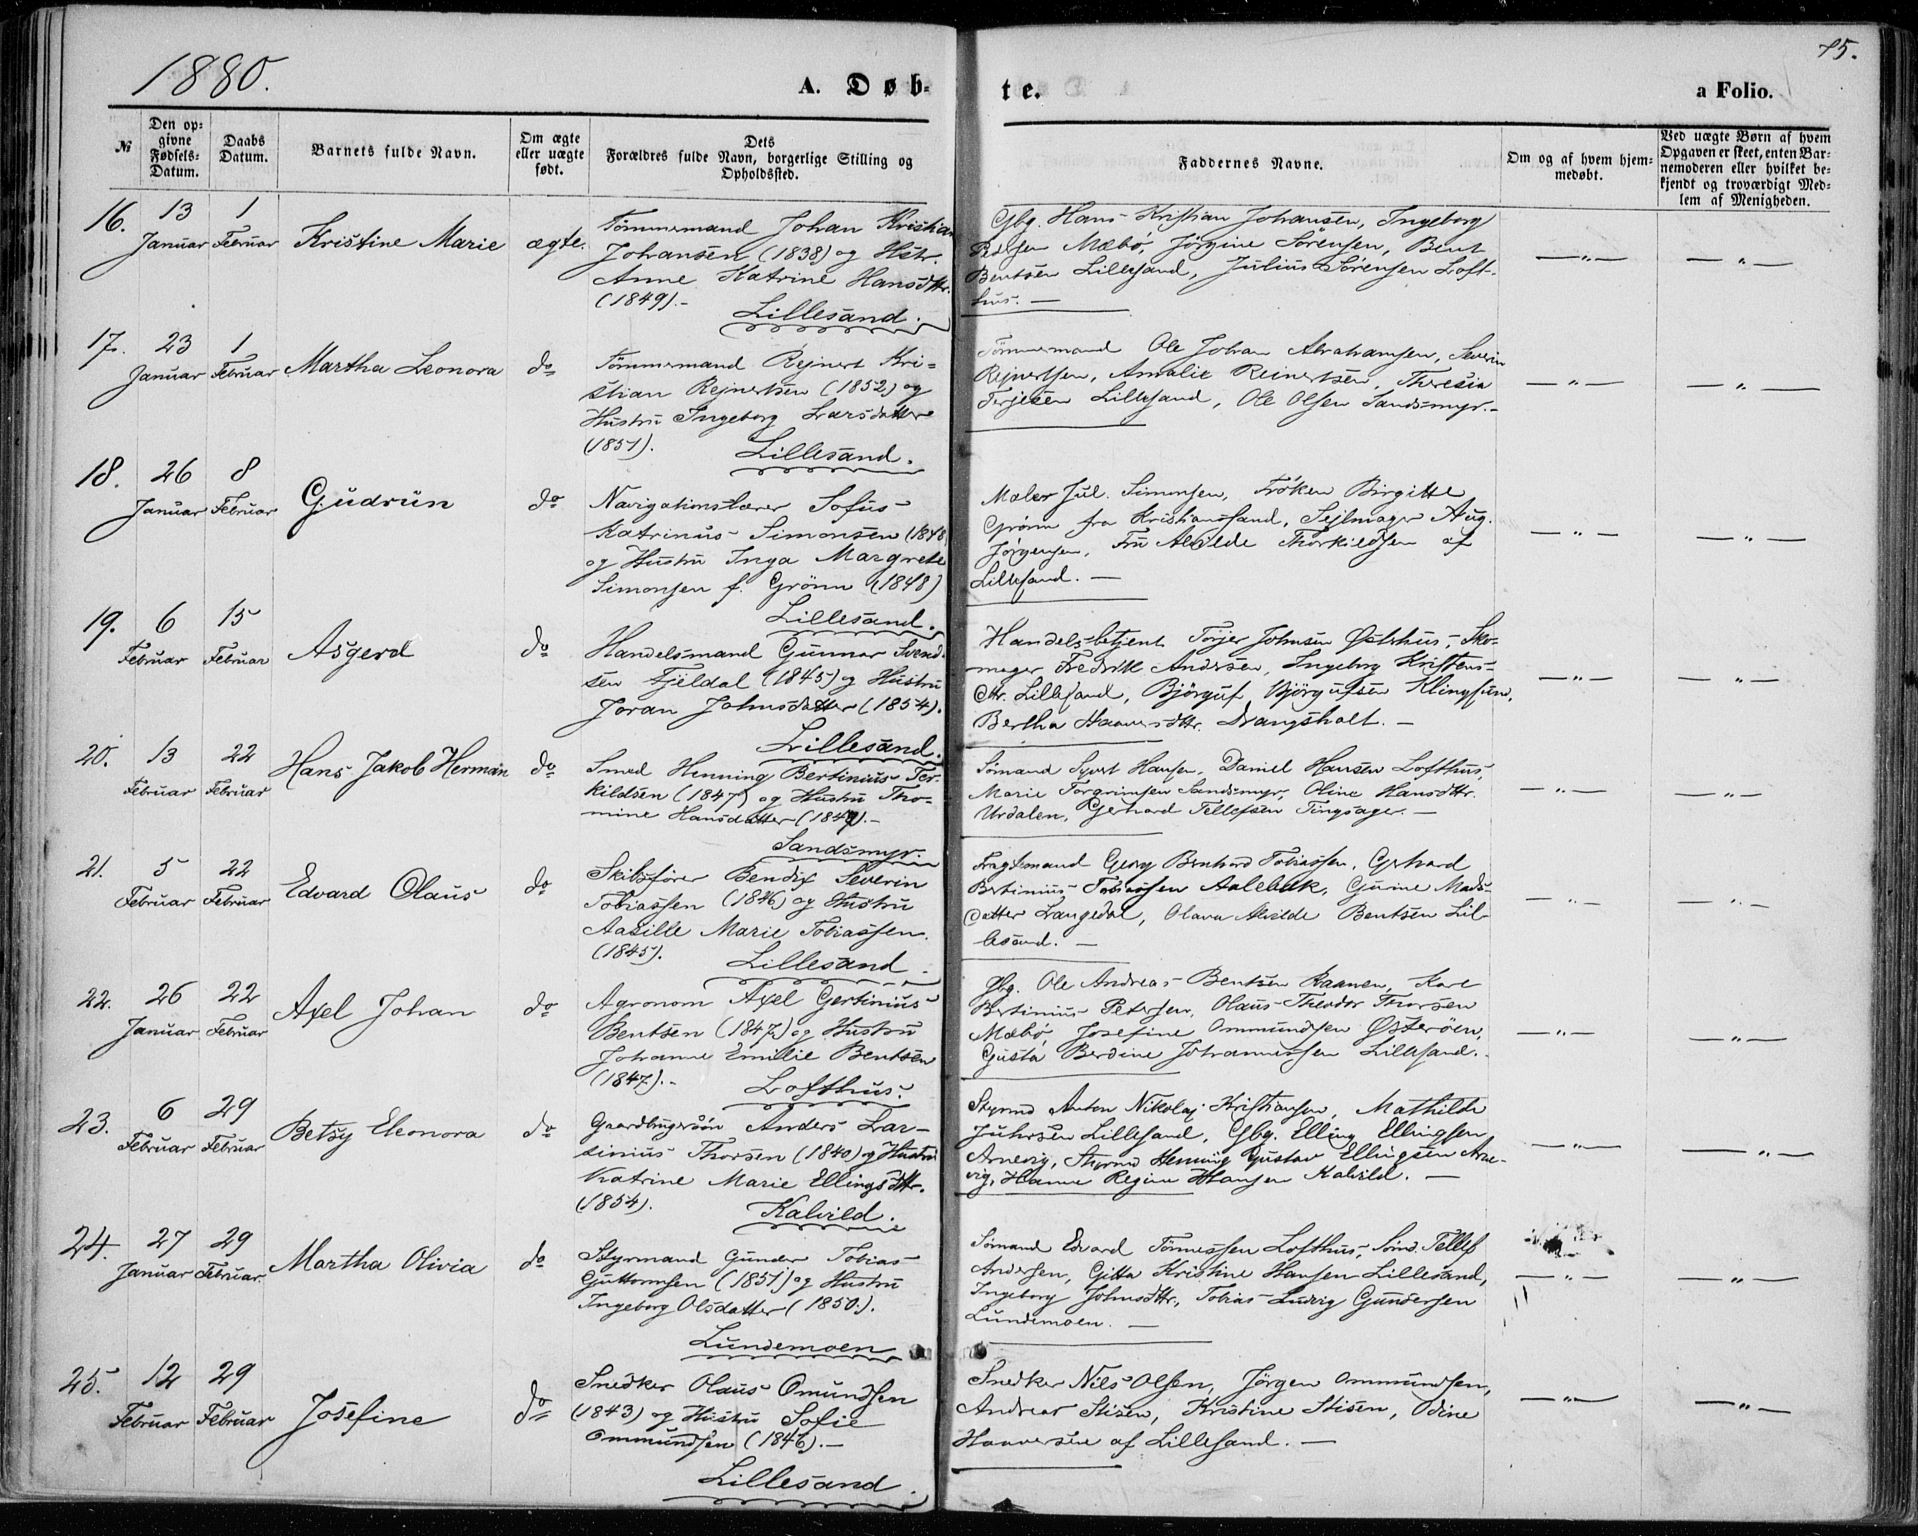 1880.
A. Døb-
te.
a Folio.
75.
№
Den op-
givne
Fødsels-
Datum.
Daabs
Datum.
Barnets fulde Navn.
Om ægte
eller uægte
født.
Dets
Forældres fulde Navn, borgerlige Stilling og
Opholdssted.
Faddernes Navne.
Om og af hvem hjem-
medøbt.
Ved uægte Børn af hvem
Opgaven er skeet, enten Bar-
nemoderen eller hvilket be-
kjendt og troværdigt Med-
lem af Menigheden.
16.
13
Januar
1
Februar
Kristine Marie
ægte.
Tømmermand Johan Kristian
Johansen (1838) og Hstr.
Anne Katrine Hansdttr.
(1849).-
Lillesand.
Gbg. Hans Kristian Johansen, Ingeborg
Pedersen Mæbø, Jørgine Sørensen, Bent
Bentsen Lillesand, Julius Sørensen Loft-
hus. —
— " —
— " —
17.
23
Januar
1
Februar
Martha Leonora
do
Tømmermand Rejnert Kri-
stian Rejnertsen (1852) og
Hustru Ingeborg Larsdatter
(1851).
Lillesand.
Tømmermand Ole Johan Abrahamsen, Severin
Rejnertsen, Amalie Reinertsen, Theresia
Terjesen Lillesand, Ole Olsen Sandsmyr.-
— " —
— " —
18.
26
Januar
8
Februar
Gudrun
do
Navigationslærer Sofus
Katrinus Simonsen (1848)
og Hustru Inga Margrete
Simonsen f. Grønn (1848)
Lillesand.
Maler Jul. Simonsen, Frøken Birgitte
Grønn fra Kristianssand, Sejlmager Aug.
Jørgensen, Fru Alvilde Thorkildsen af
Lillesand. —
— " —
— " —
19.
6
Februar
15
Februar
Asgerd
do
Handelsmand Gunnar Svend-
sen Fjeldal (1845) og Hustru
Joran Johnsdatter (1854).
Lillesand.
Handelsbetjent Terjer Johnsen Østerhus, Sko-
mager Fredrik Andersen, Ingeborg Kristens-
dtr. Lillesand, Bjørguf Bjørgufsen Klingsund,
Bertha Haaversdttr. Drangsholt. —
— " —
— " —
20.
13
Februar
22
Februar
Hans Jakob Herman
do
Smed Henning Bertinius Ter-
kildsen (1847) og Hustru Tho-
mine Hansdatter (1849).-
Sandsmyr.
Sømand Syvert Hansen, Daniel Hansen Lofthus,
Marie Torgrimsen Sandsmyr, Oline Hansdttr.
Urdalen, Gerhard Tellefsen Tingsager. —
— " —
— " —
21.
5
Februar
22
Februar
Edvard Olaus
do
Skibsfører Bendix Severin
Tobiassen (1846) og Hustru
Aasille Marie Tobiassen.
(1845).
Lillesand.
Fragtemand Georg Bernhard Tobiassen, Gerhard
Bertinius Tobiassen Aalebæk, Gunne Mads-
datter Langedal, Olava Alvilde Bentsen Lil-
lesand. —
— " —
— " —
22.
26
Januar
22
Februar
Axel Johan
do
Agronom Axel Gertinius
Bentsen (1847) og Hustru
Johanne Emilie Bentsen
(1847).-
Lofthus.
Gbg. Ole Andreas Bentsen Raanen, Karl
Bertinius Petersen, Olaus Theodor Thorsen
Mæbø, Josefine Ommundsen Østerøen,
Gusta Berdine Johannessen Lillesand.
— " —
— " —
23.
6
Februar
29
Februar
Betsy Eleonora
do
Gaardbrugersøn Anders Lar-
sinius Thorsen (1840) og Hustru
Katrine Marie Ellingsdttr.
(1854).
Kalvild.
Styrmd Anton Nikolaj Kristiansen, Mathilde
Juhrsen Lillesand, Gbg. Elling Ellingsen
Arnevig, Styrmd Henning Gustav Ellingsen Arne-
vig, Hanne Regine Hansen Kalvild. —
— " —
— " —
24.
27
Januar
29
Februar.
Martha Olivia
do
Styrmand Gunder Tobias
Guttormsen (1851) og Hustru
Ingeborg Olsdatter (1850).
Lundemoen
Sømand Edvard Tønnessen Lofthus, Sømd. Tellef
Andersen, Gitta Kristine Hansen Lillesand,
Ingeborg Johnsdttr, Tobias Ludvig Gundersen
Lundemoen. —
— " —
— " —
25.
12
Februar
29
Februar
Josefine
do
Snedker Olaus Omundsen
(1843) og Hustru Sofie
Ommundsen (1846).—
Lillesand.
Snedker Nils Olsen, Jørgen Ommundsen,
Andreas Stisen, Kristine Stisen, Odine
Haaversen af Lillesand. —
— " —
— " —